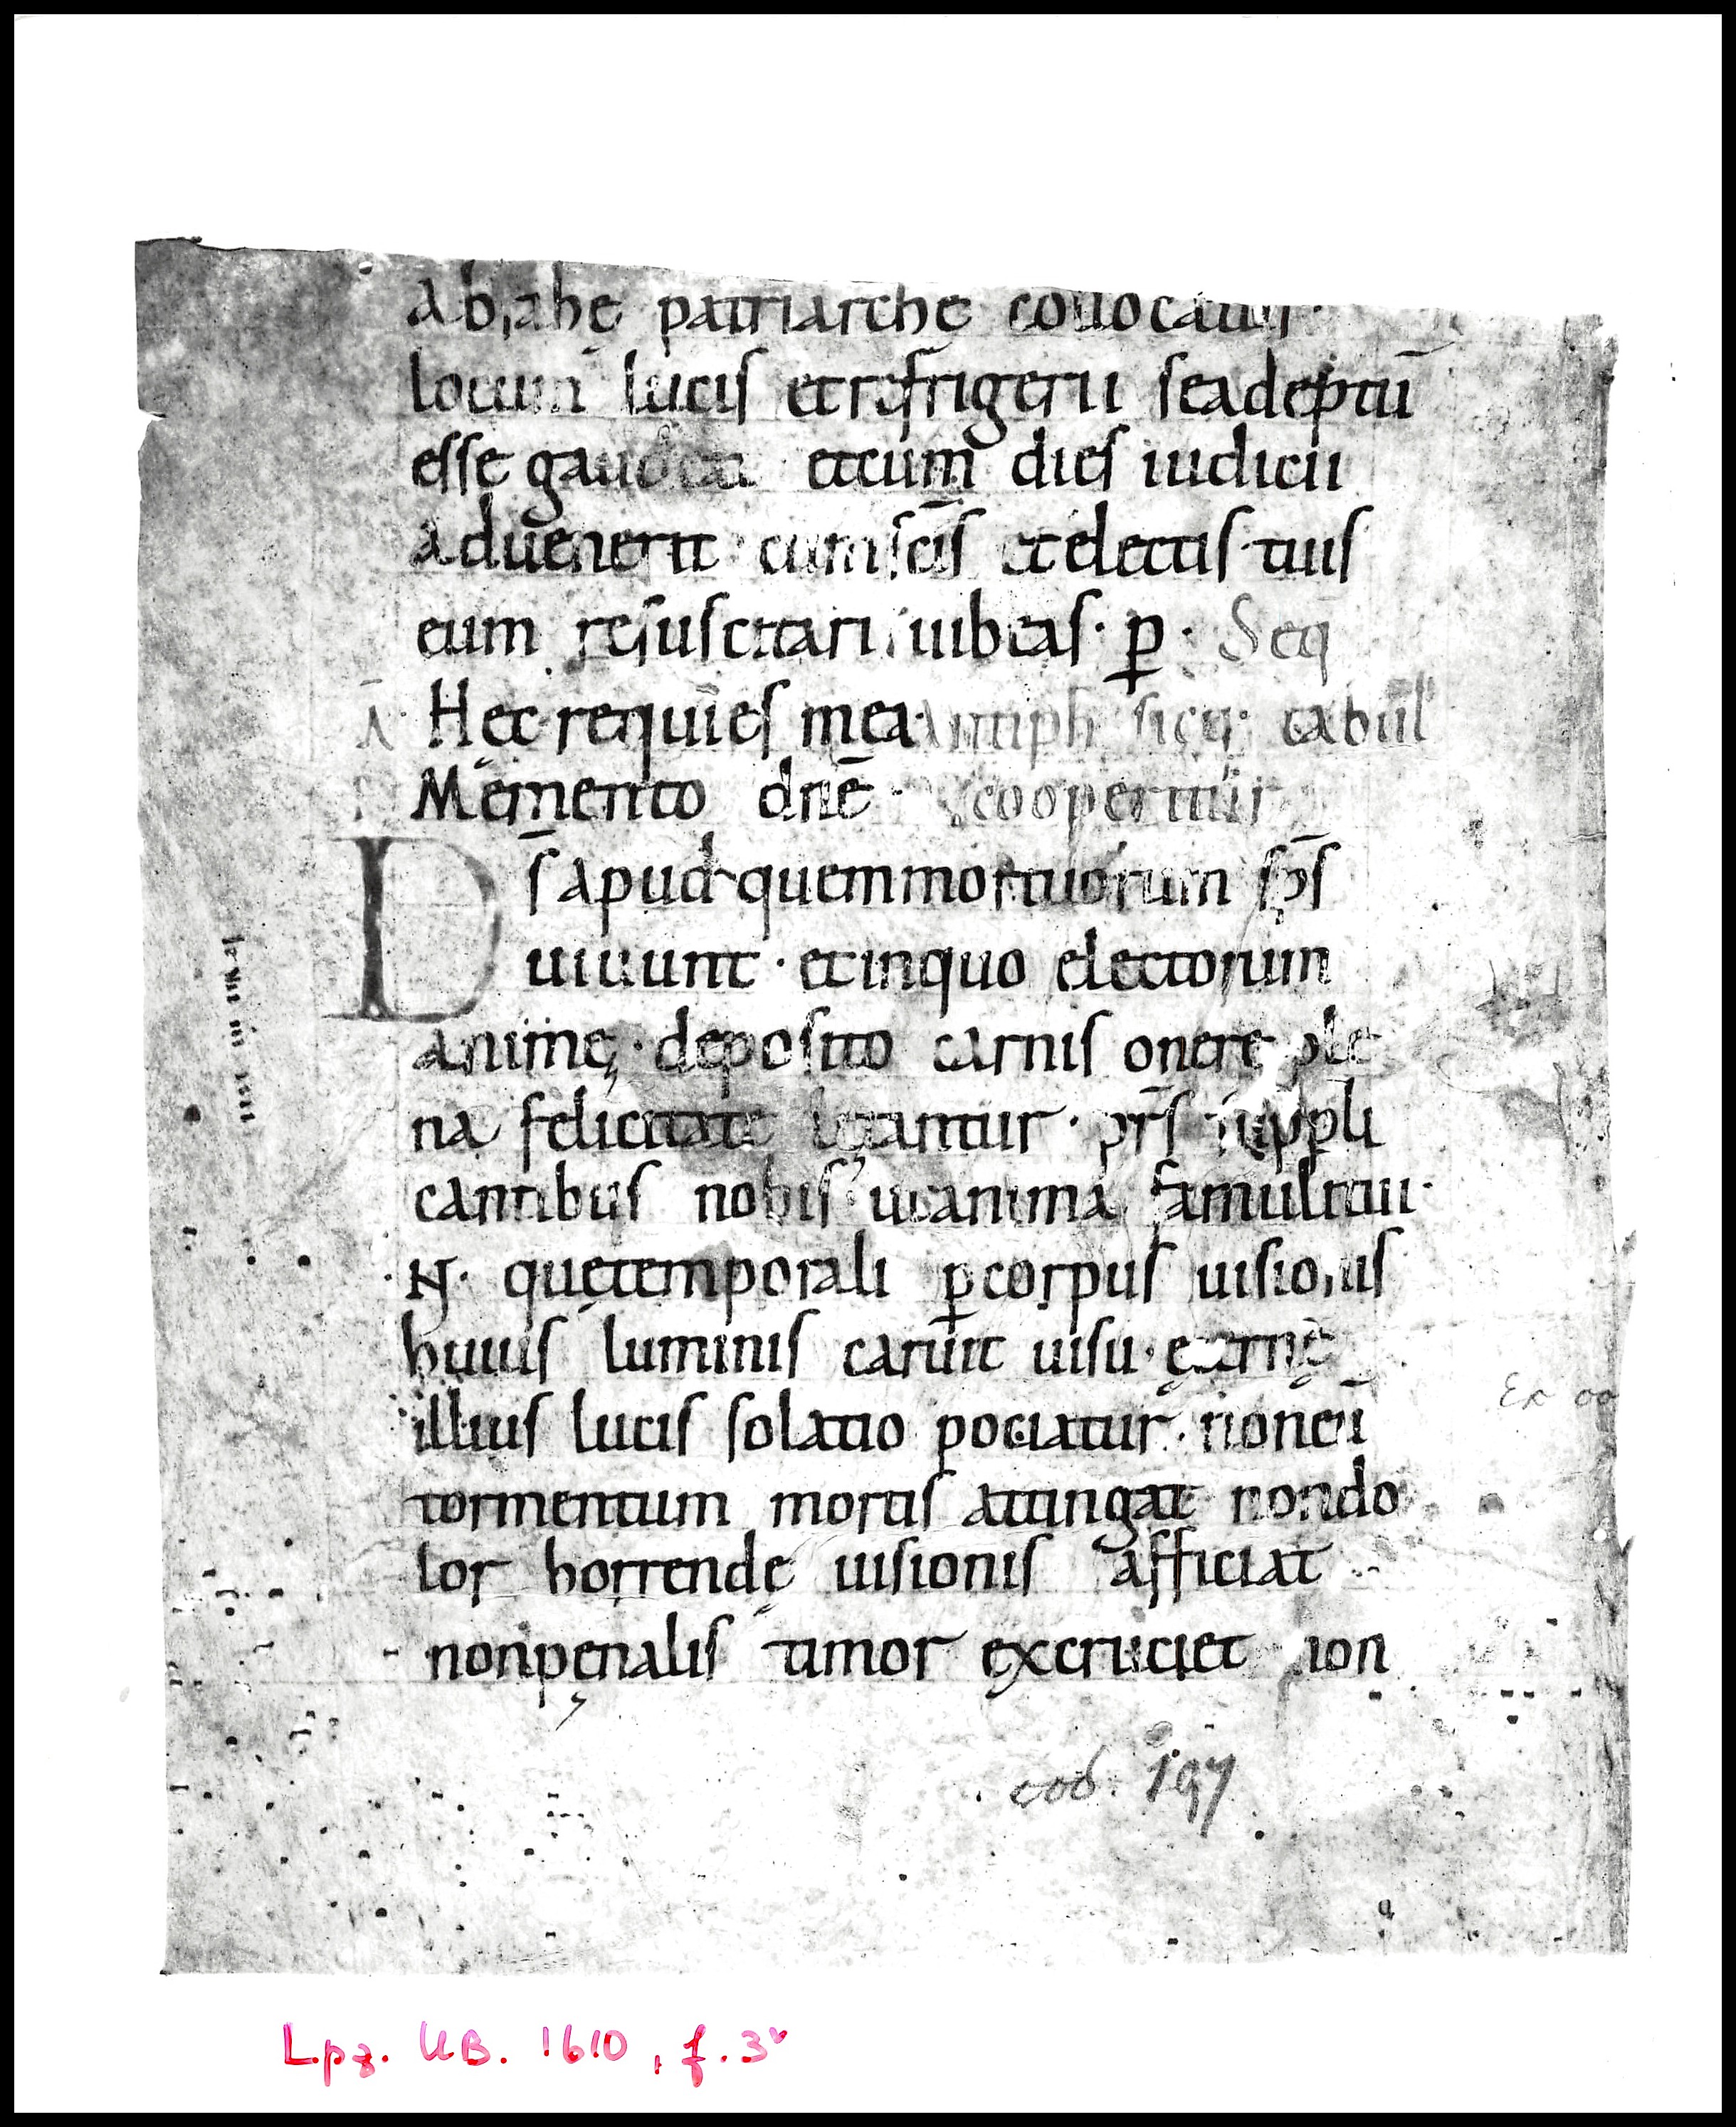 abrahę patriarche collocatus
locum lucis et refrigerii se adeptū
esse gaudeat et cum dies iudicii
aduenerit cum scīs et electis tuis
eum resuscitari iubeas · p̲ · Seq̄
Ā Hęc requies mea Antiph sicq; tabul
Memento dn̄e · cooperitur
D s̄ apud quem mortuorum sp̄s
uiuunt · et in quo electorum
animę · deposito carnis onere ple
na felicitate lętantur · p̄rs suppli
cantibus nobis ut anima famuli tui ·
·N· quę temporali p̲ corpus uisionis
huius luminis caruit uisu · ęternę
illius lucis solatio pociatur · non eū
tormentum mortis attingat non do
lor horrendę uisionis afficiat
non pęnalis timor excruciet non
cod. 197
Lpz. UB. 1610, f. 3ᵛ